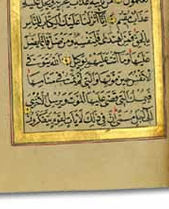 عذاب مقيم إنا أنزلنا عليك الكتاب للناس
بالحق فمن اهتدى فلنفسه ومن ضل فإنما يضل
عليها وما أنت عليهم بوكيل الله يتوفى
الأنفس حين موتها والتي لم تمت في منامها
فيمسك التي قضى عليها الموت ويرسل الأخرى
إلى أجل مسمى إن في ذلك لآيات لقوم يتفكرون